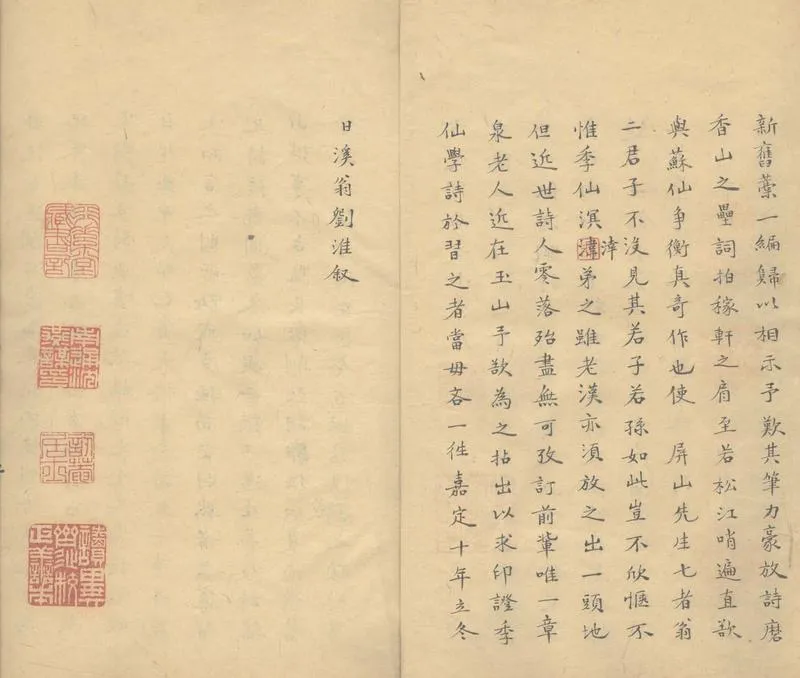 新舊藁一編歸以相示予歎其筆力豪放詩磨
香山之壘詞拍稼軒之肩至若松江哨遍直欲
與蘇仙争衡真奇作也使 屏山先生七者翁
二君子不沒見其若子若孫如此豈不欣愜不
惟季仙溟涬弟之雖老漢亦須放之出一頭地
但近世詩人零落殆盡無可孜訂前軰唯一章
泉老人近在玉山予欲為之拈出以求印證季
仙學詩於習之者當毋吝一徃嘉定十年立冬
日溪翁劉淮叙
南通沈
燕謀印
訒菴
居士